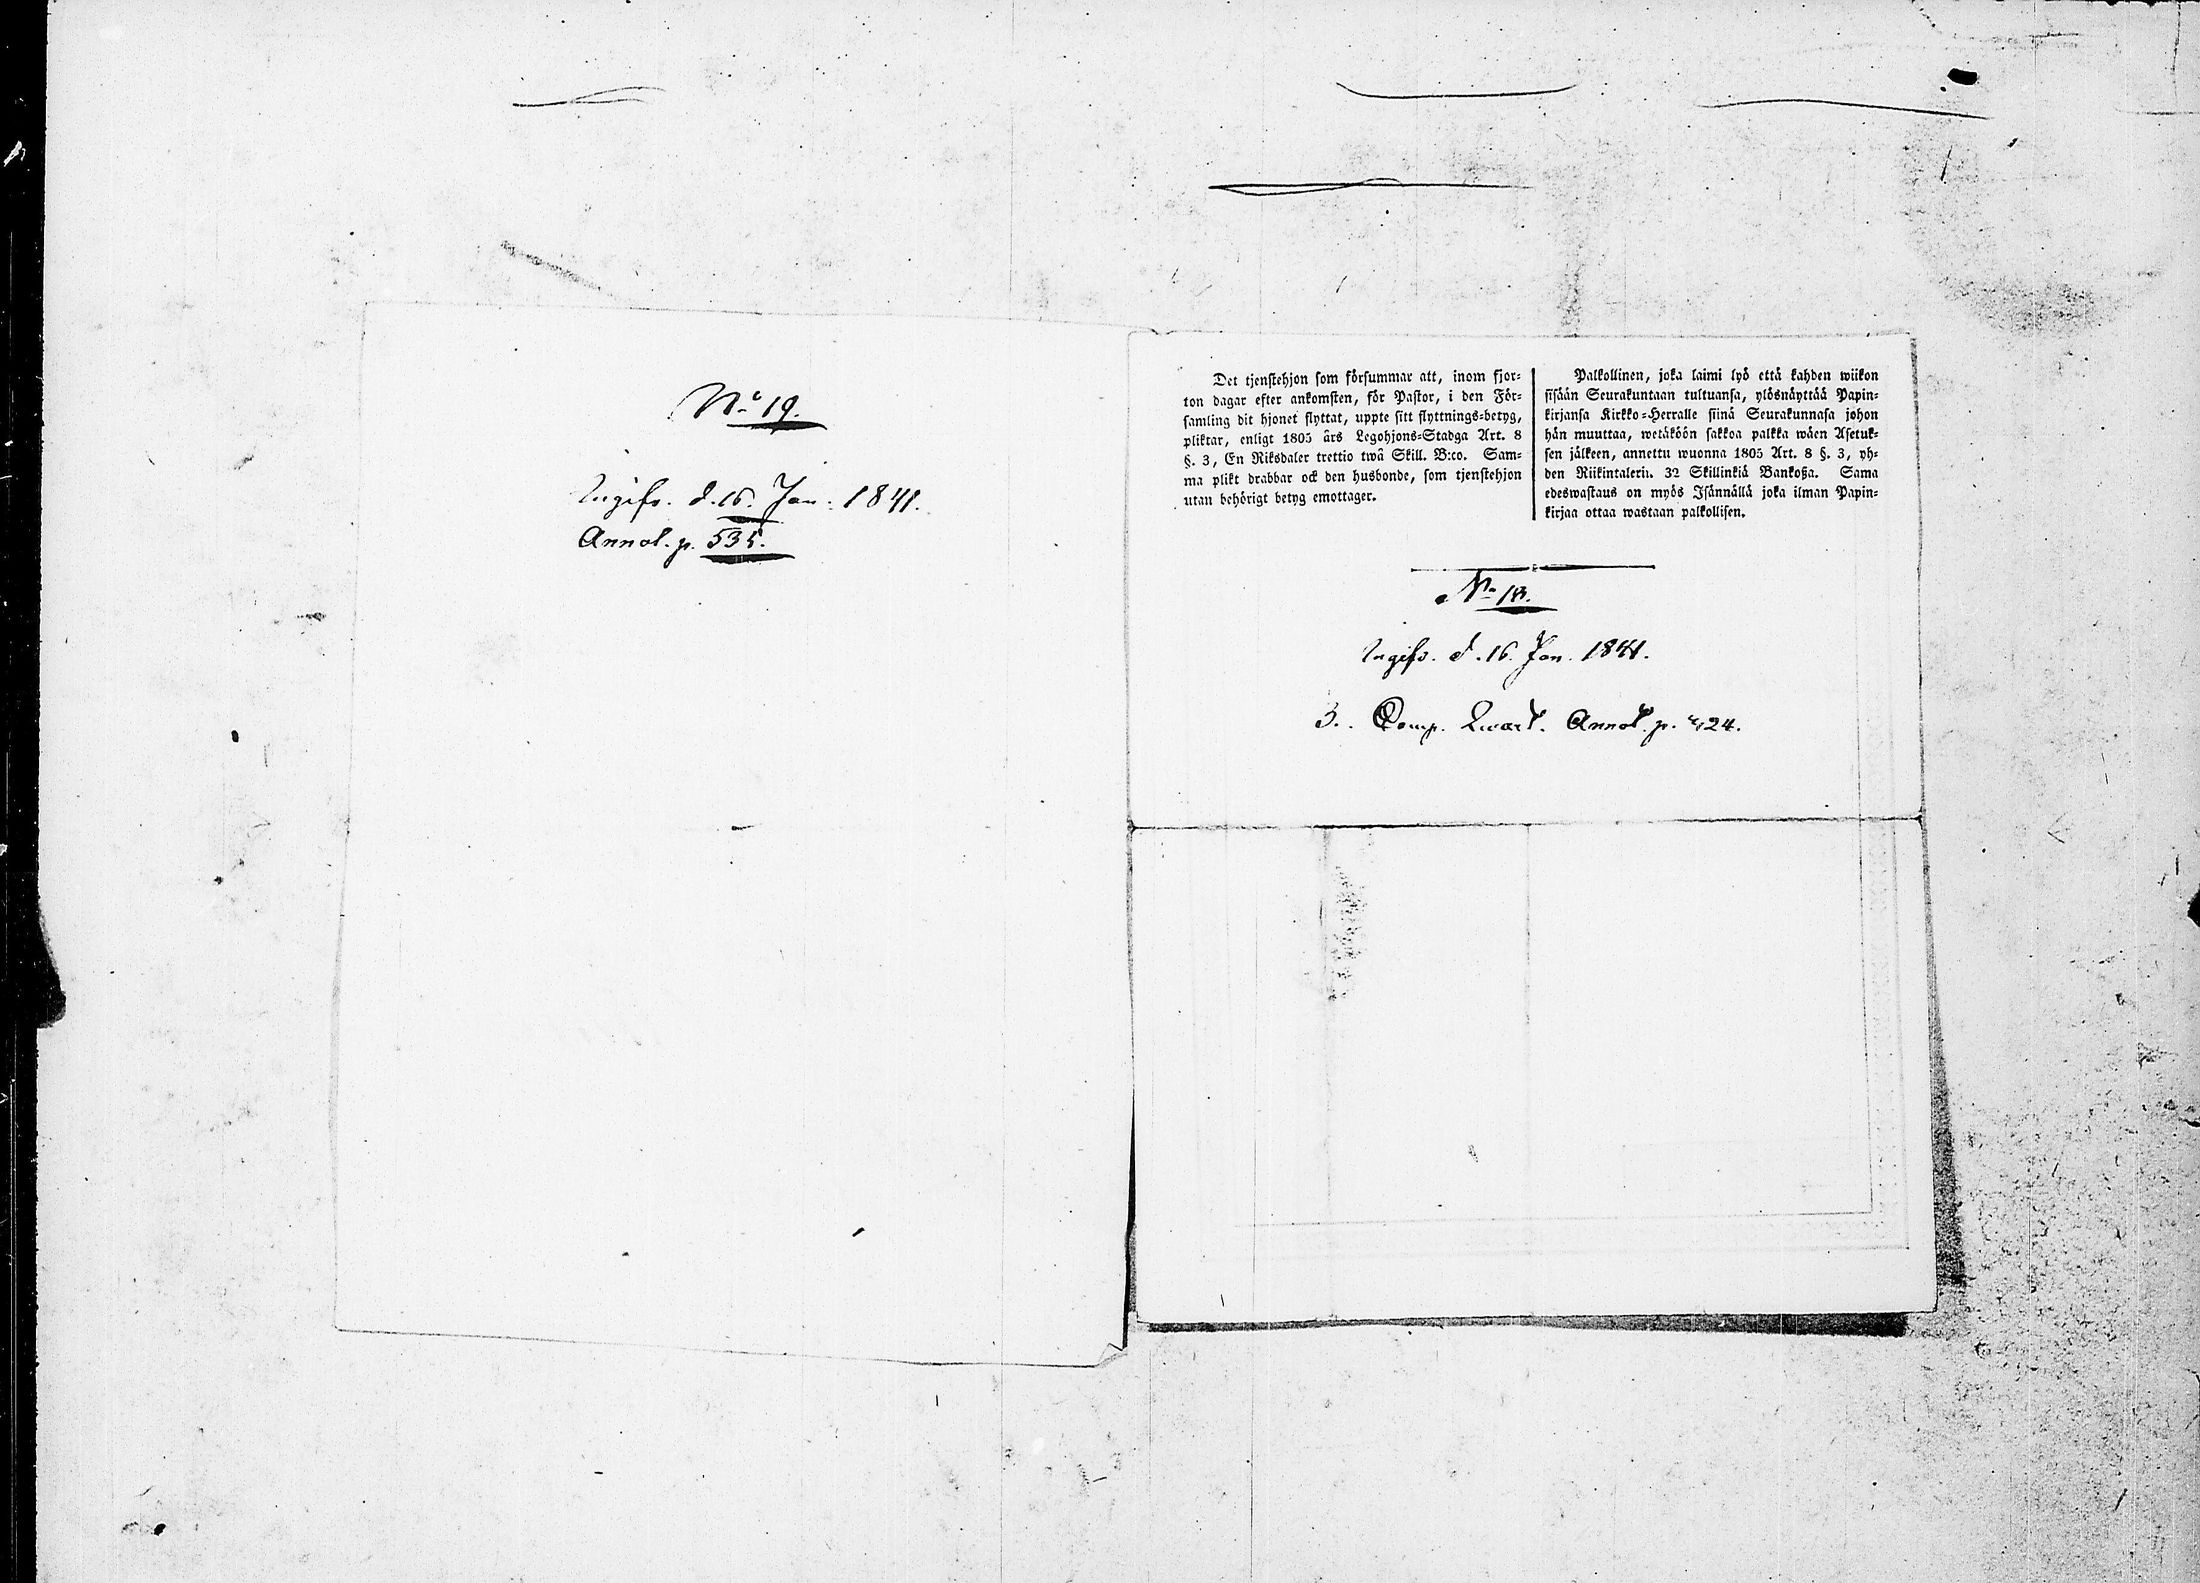 No 19.
Ingifv. d. 16. Jan. 1841.
Annot. p. 535.
Det tjenstehjon som försummar att, inom fjor-
ton dagar efter ankomsten, för Pastor, i den För-
samling dit hjonet flyttat, uppte sitt flyttnings-betyg,
pliktar, enligt 1805 års Legohjons-Stadga Art. 8
§. 3, En Riksdaler trettio twå Skill. B:co. Sam-
ma plikt drabbar ock den husbonde, som tjenstehjon
utan behörigt betyg emottager.
Palkollinen, joka laimi lyö että kahden wiikon
sisään Seurakuntaan tultuansa, ylösnäyttää Papin-
kirjansa Kirkko-Herralle siinä Seurakunnasa johon
hän muuttaa, wetäköön sakkoa palkka wäen Asetuk-
sen jälkeen, annettu wuonna 1805 Art. 8 §. 3, yh-
den Riikintalerin. 32 Skillinkiä Bankoßa. Sama
edeswastaus on myös Isännällä joka ilman Papin-
kirjaa ottaa wastaan palkollisen.
No 18.
Ingifv. d. 16. Jan. 1841.
3. Comp. Qwart. Annot. p. 424.